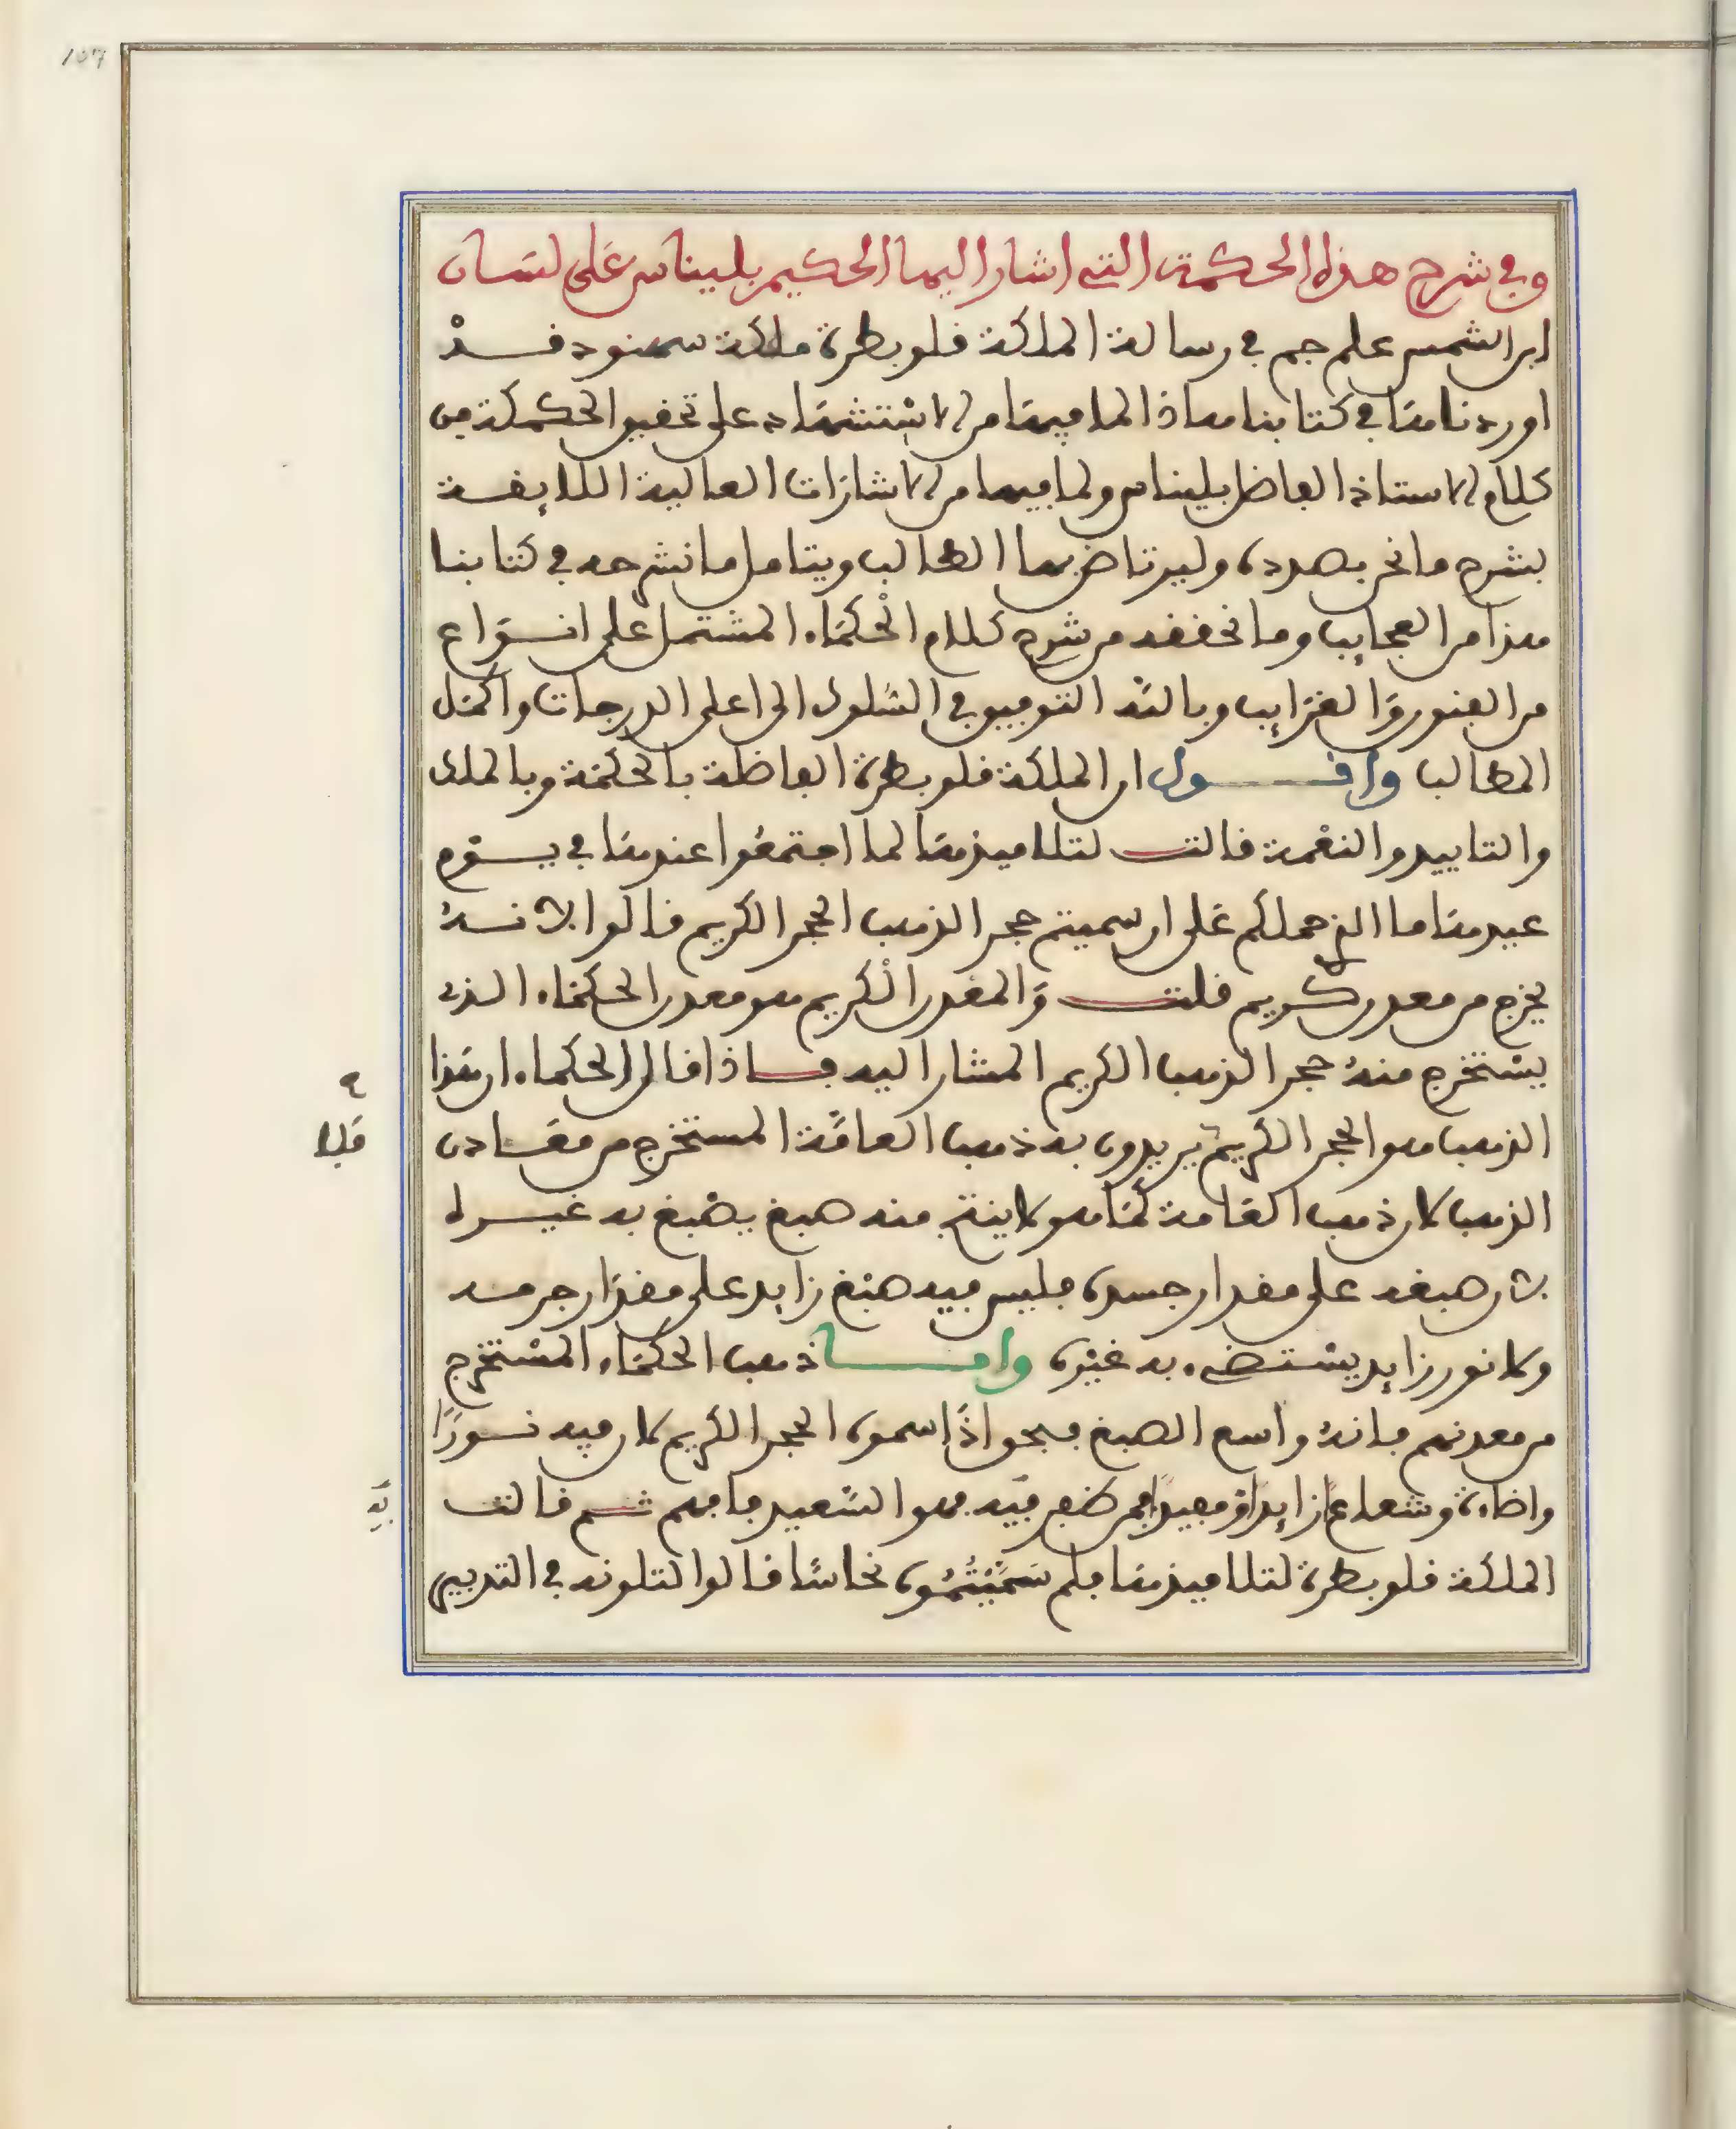 107
وفي شرح هذه الحكمة التي اشار اليها الحكيم بليناس على لسان
ابن الشمس علم جم في رسالة الملكة قلوبطرة ملكة سمنود قد
اوردناها في كتابنا هاذا لما فيها من الاستشهاد على تحقيق الحكمة من
كلام الاستاذ الفاضل بليناس ولما فيها من الاشارات العالية اللايقة
بشرح ما نحن بصدده وليرتاض بها الطالب ويتامل ما نشرحه في كتابنا
هذا من العجايب وما نحققه من شرح كلام الحكماء المشتمل على انواع
من الفنون والغرايب وبالله التوفيق في السلوك الى اعلى الدرجات واكمل
المطالب واقول ان الملكة قلوبطرة الفاضلة بالحكمة وبالملك
والتاييد والنعمة قالت لتلاميذها لما اجتمعوا عندها في يوم
عيدها ما الذي حملكم على ان سميتم حجر الذهب الحجر الكريم قالوا لانه
يخرج من معدن كريم قلت والمعدن الكريم هو معدن الحكماء الذي
يستخرج منه حجر الذهب الكريم المشار اليه فاذا قال الحكماء ان هذا
الذهب هو الحجر الكريم يريدون به ذهب العامة المستخرج من معادن
فلا
الذهب لان ذهب العامة كما هو لا ينتج منه صبغ يصبغ به غيره
لان صبغه على مقدار جسده فليس فيه صبغ زايد على مقدار جرمه
ولا نور زايد يستضيء به غيره واما ذهب الحكماء المستخرج
من معدنهم فانه واسع الصبغ فبحق اذا سموه الحجر الكريم لان فيه نورا
واضاءة وشعاعا زايدا ومفيدا فمن ظفر فيه فهو السعيد فافهم ثم قالت
به
الملكة قلوبطرة لتلاميذها فلم سميتموه نحاسا قالوا لتلونه في التدبير